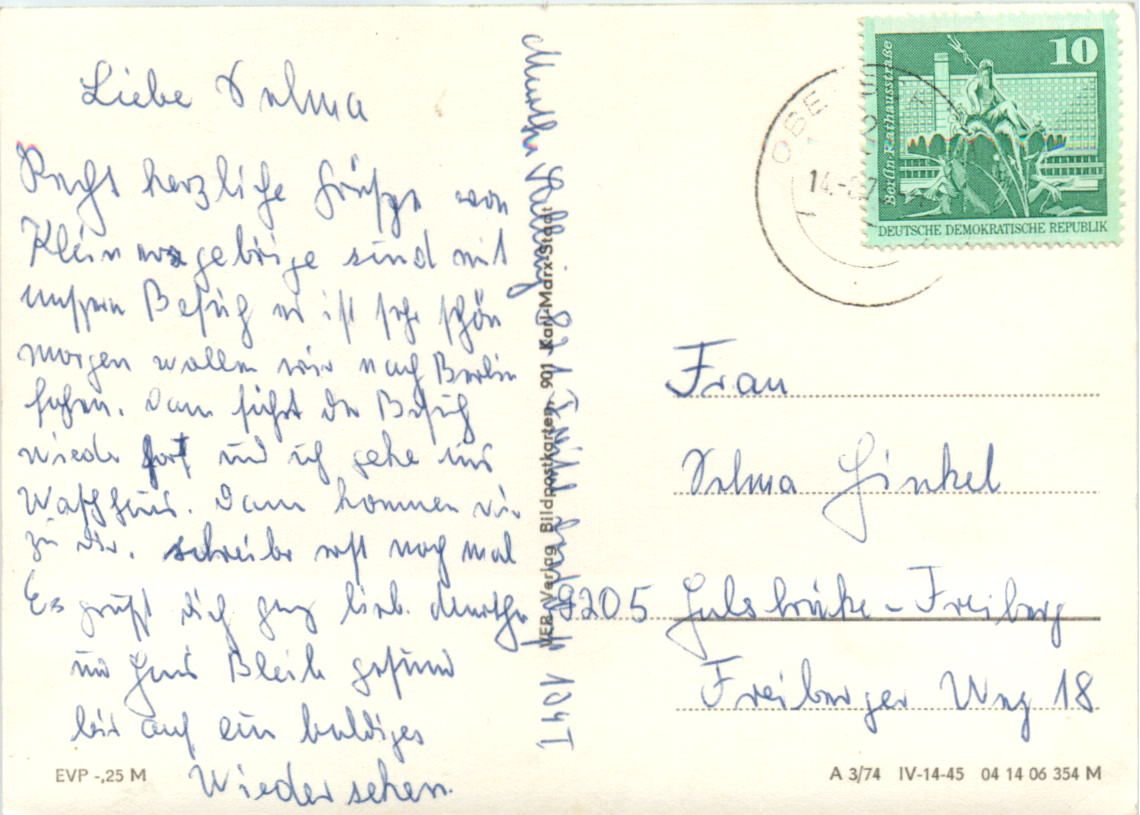 Liebe Selma
Recht herzliche Grüße von
Klein gebirge sind mit
unseren Besuch es ist sehr schön
morgen wollen wir nach Berlin
fahren. Dann fährt der Besuch
wieder fort und ich gehe ins
Waschhaus. Dann kommen wir
zu dir. schreibe erst noch mal
Es grüßt dich ganz lieb. Marthe
und Hans Bleib gesund
bis auf ein baldiges
Wiedersehen.
EVP -,25 M
VEB Verlag Bildpostkarten, 901 Karl-Marx-Stadt
10
Berlin-Rathausstraße
DEUTSCHE DEMOKRATISCHE REPUBLIK
Frau
Selma Hinkel
9205 Halsbrücke-Freiberg
Freiberger Weg 18
A 3/74 IV-14-45 04 14 06 354 M